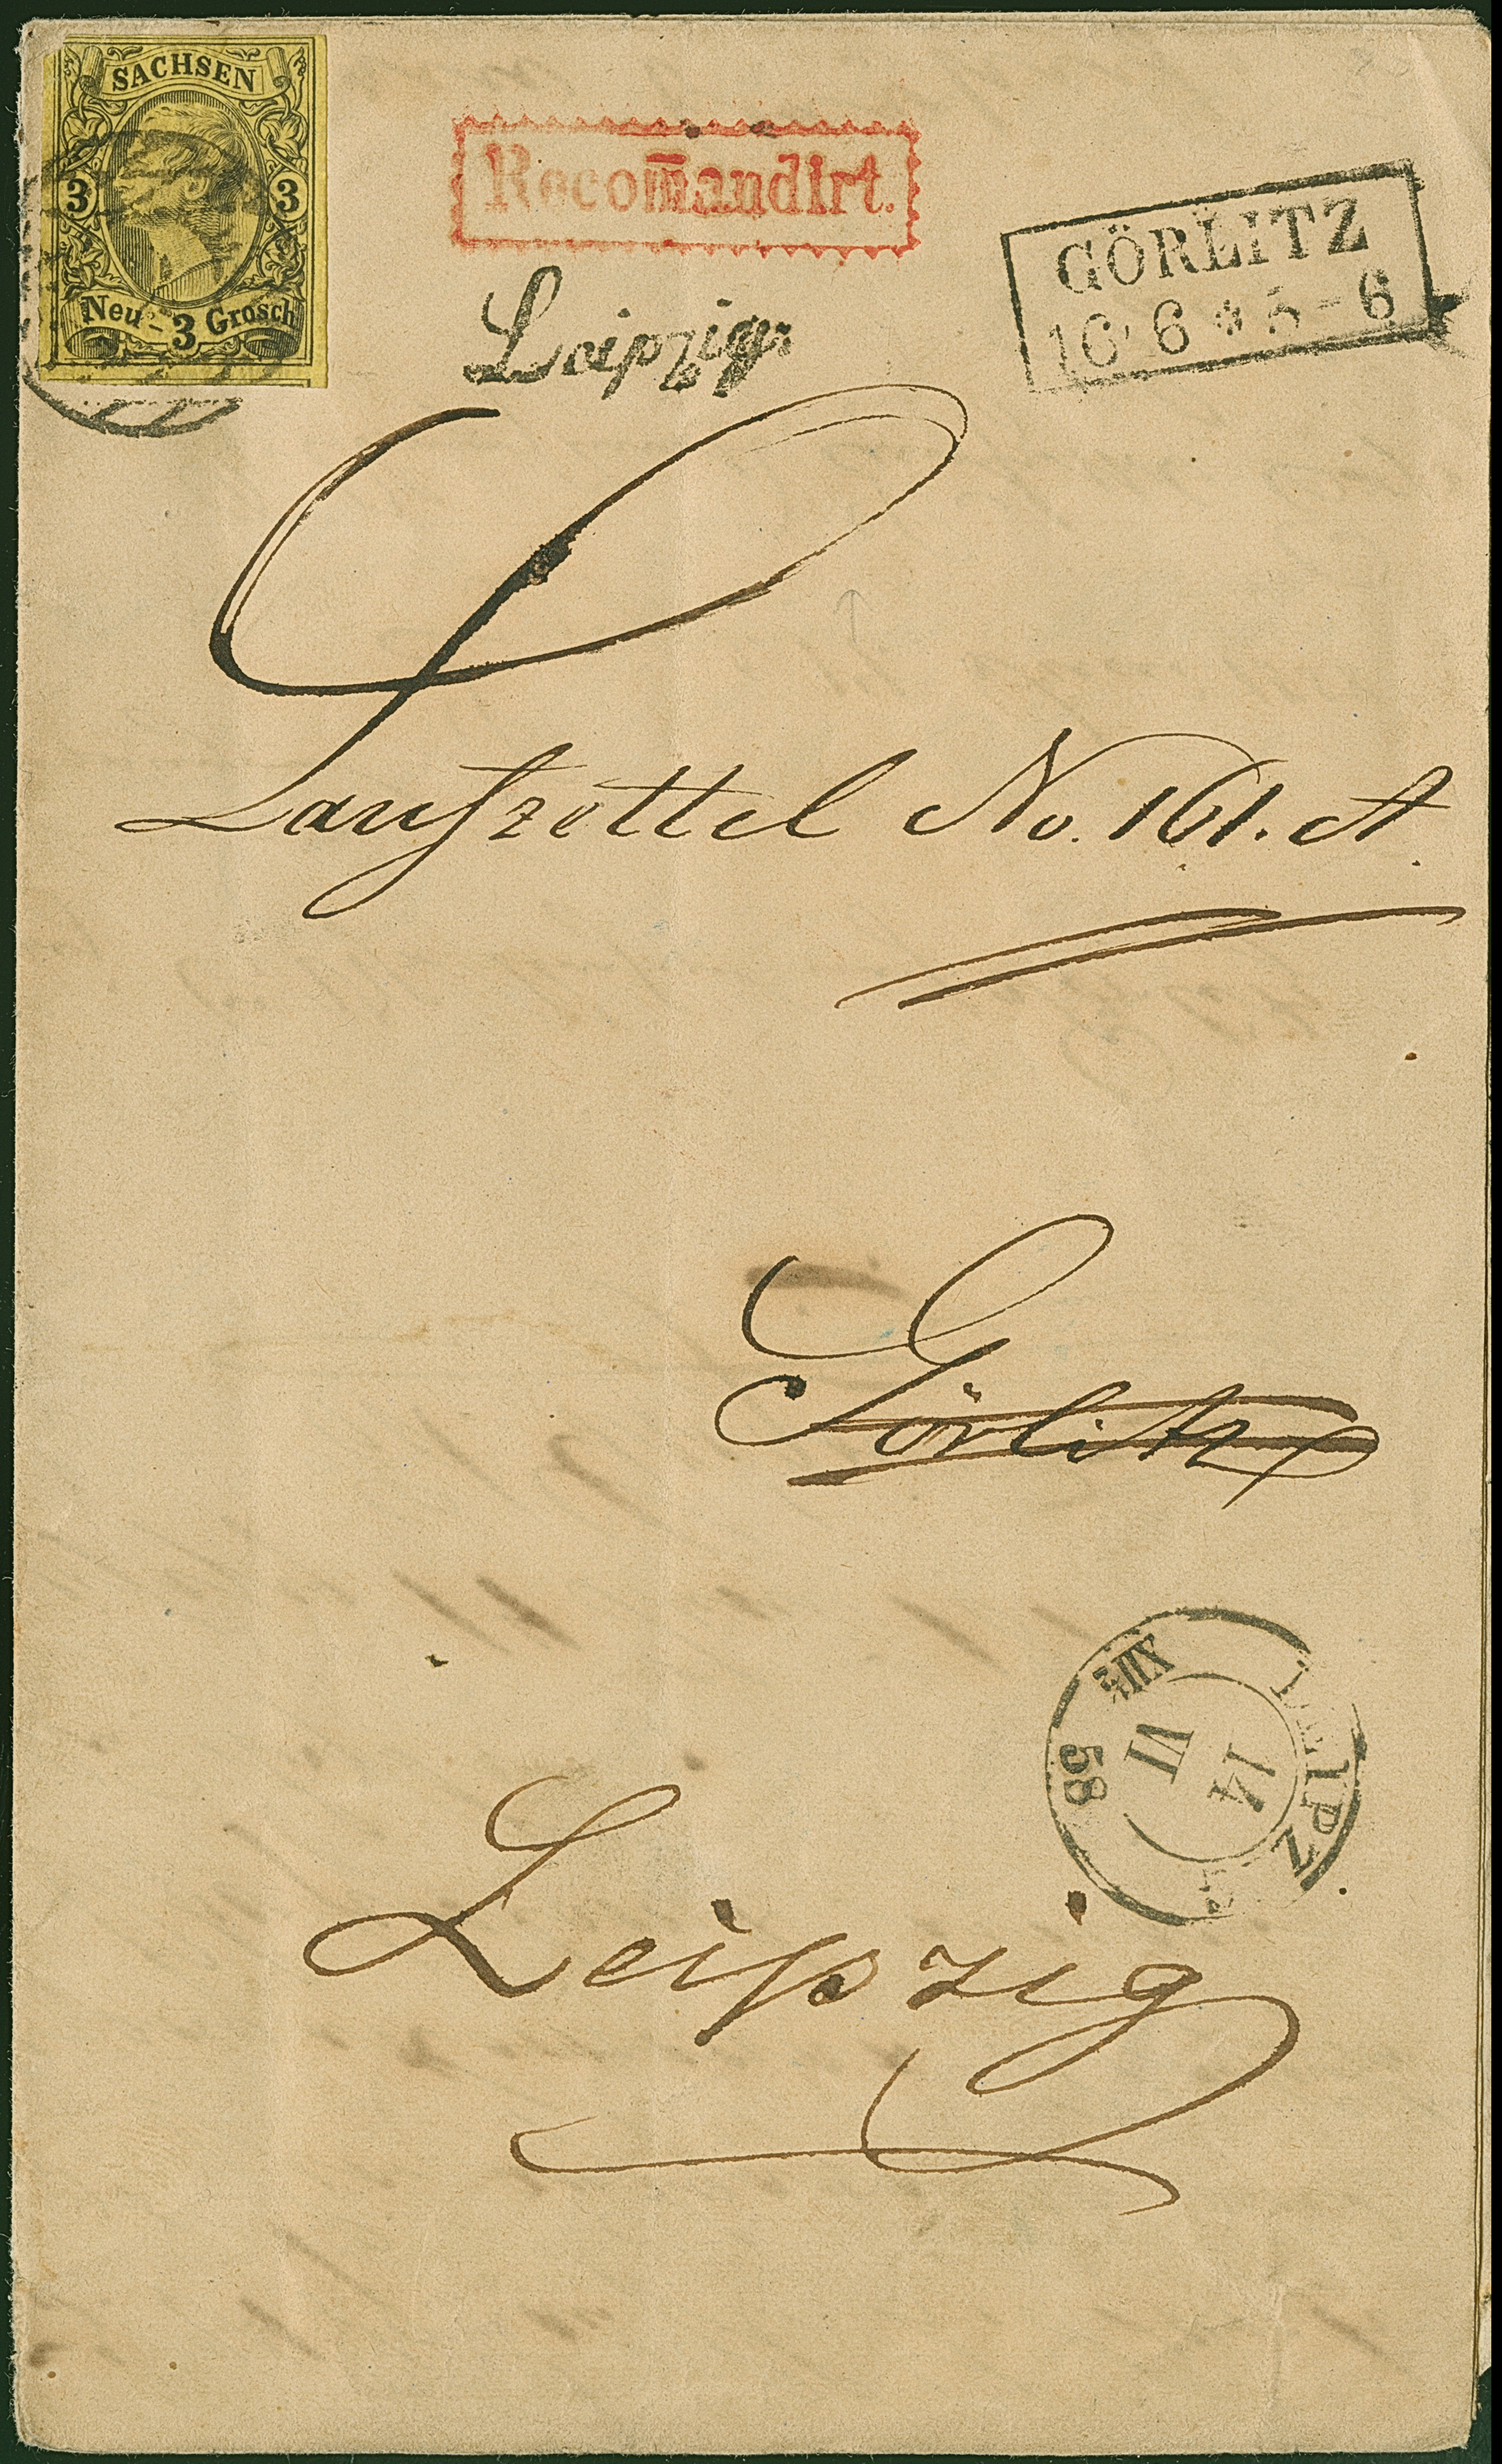 SACHSEN
3 3
Neu-3 Grosch
Recom̄andirt.
Leipzig.
GÖRLITZ
16 6 * 5-6
Laufzettel No. 161. A.
Görlitz
LEIPZIG
14
VI
XII
58
Leipzig